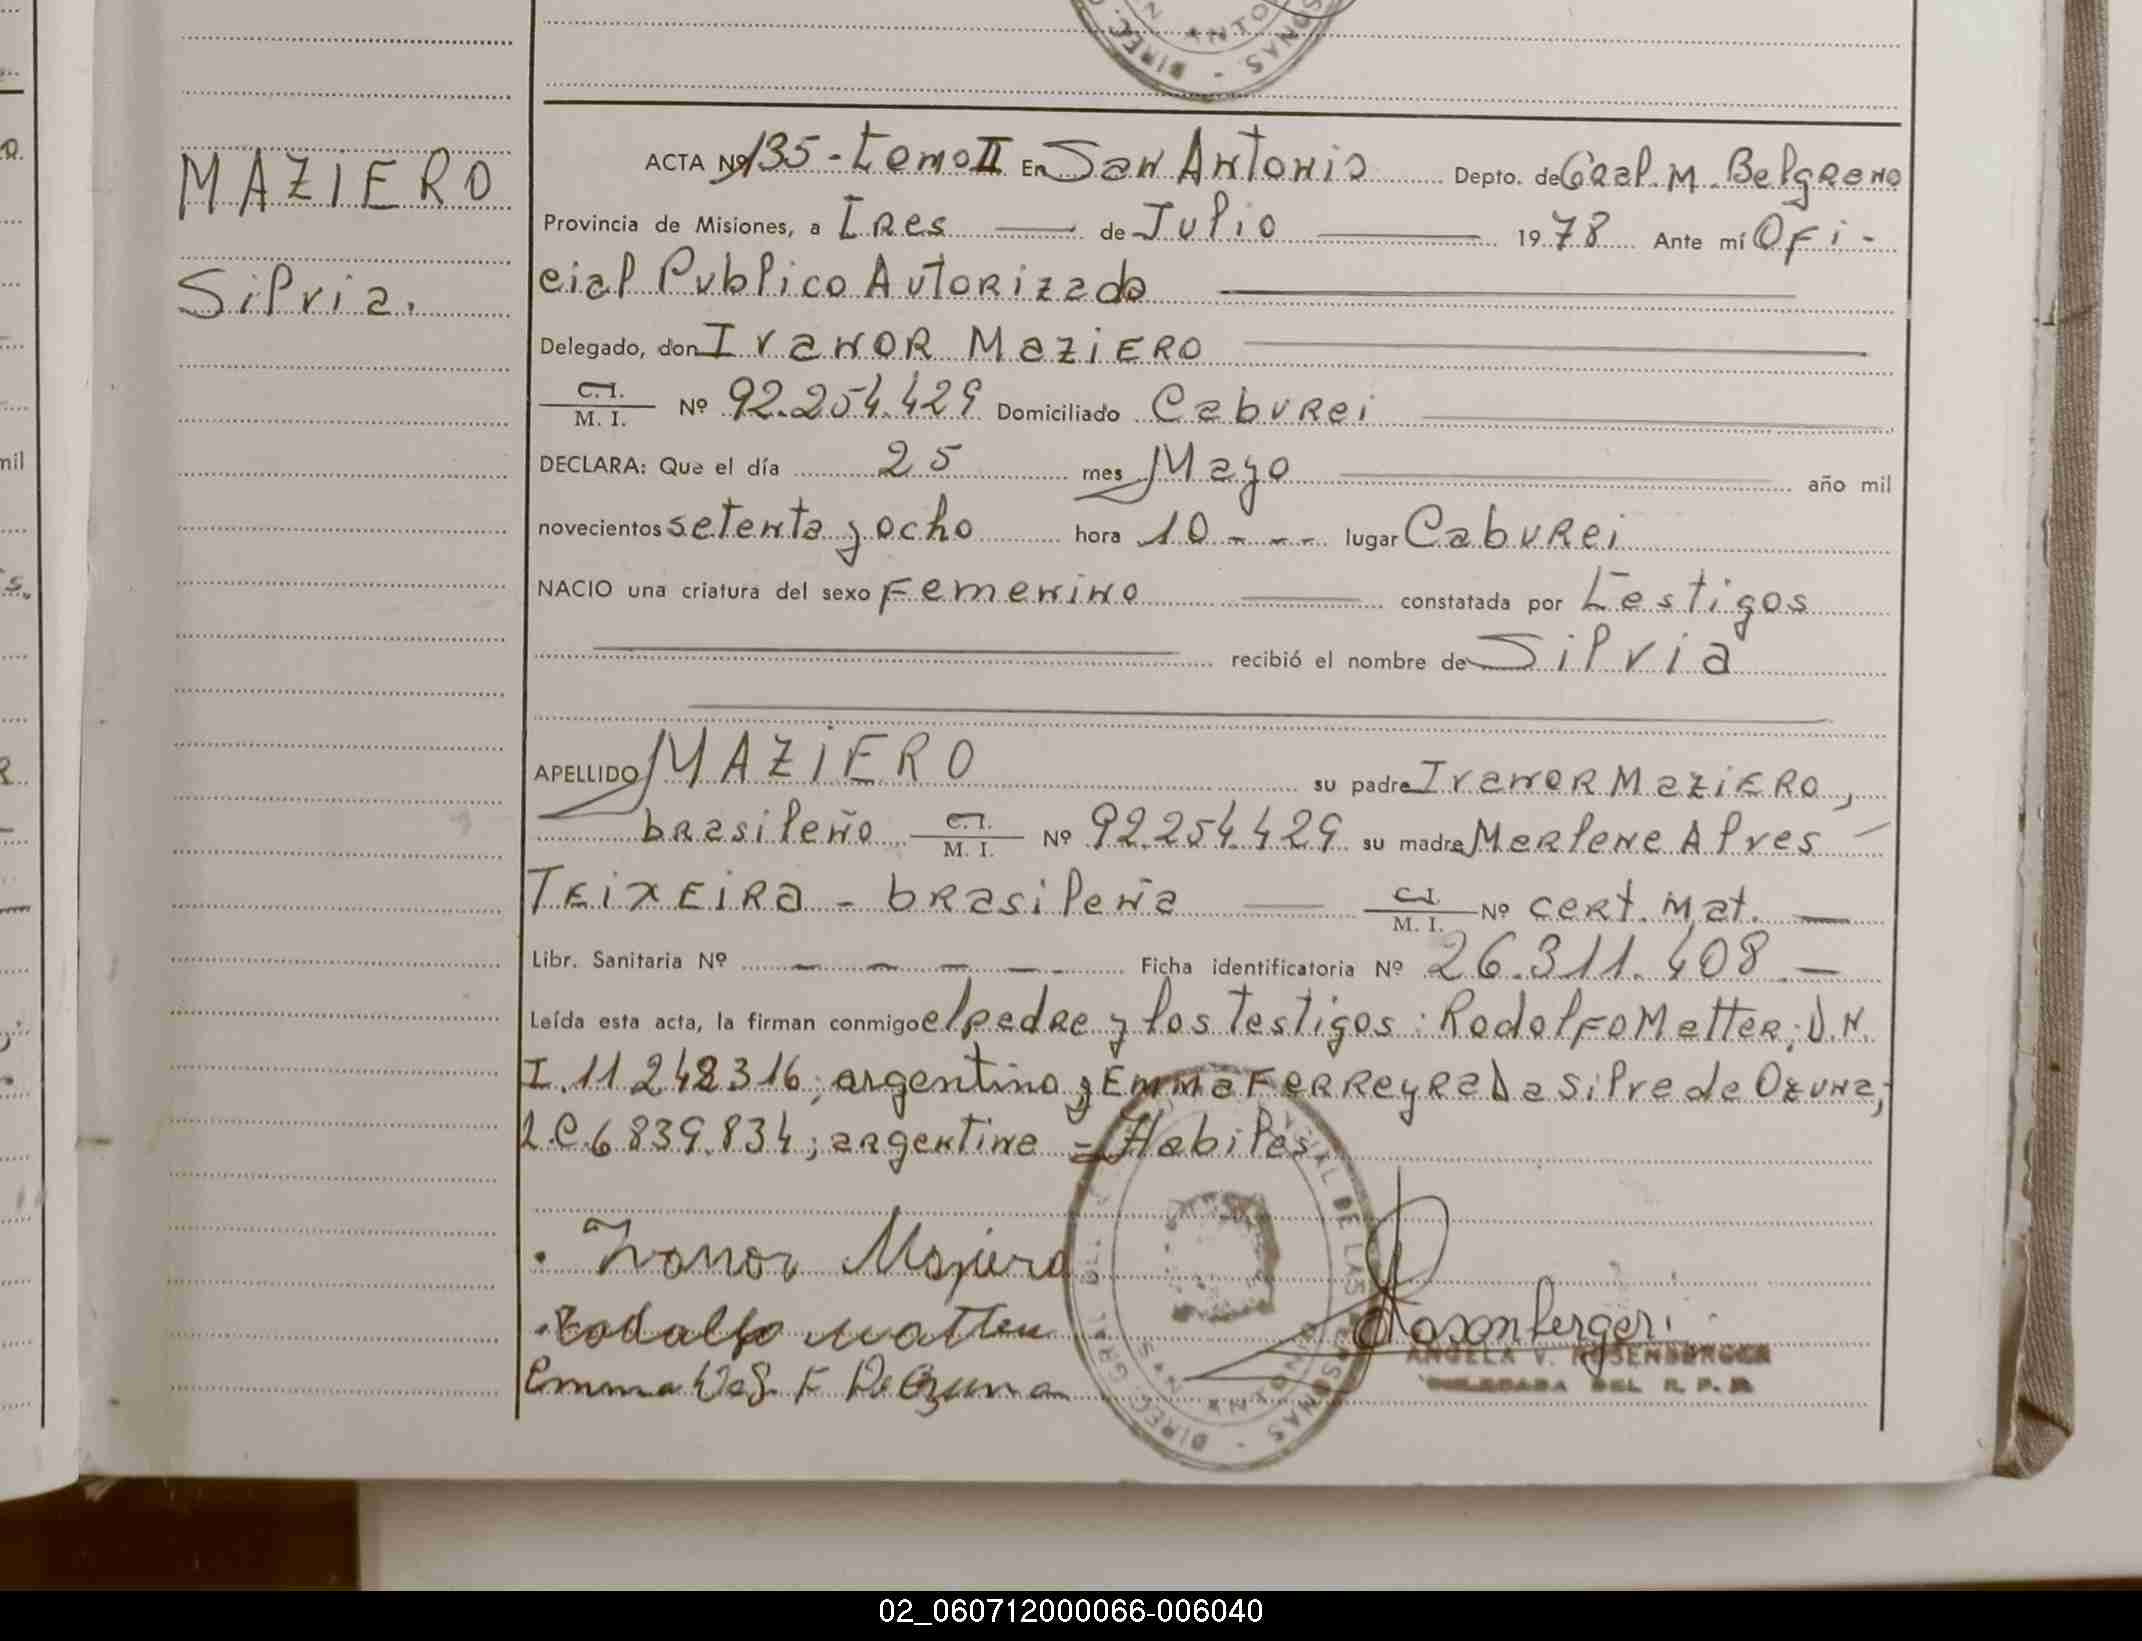 MAZIERO
Silvia.
ACTA Nº 135 - tomo II En San Antonio Depto. de Gral. M. Belgrano
Provincia de Misiones, a Tres de Julio 1978 Ante mí Ofi-
cial Publico Autorizado
Delegado, don Ivanor Maziero
C.I.
M. I. Nº 92.254.429 Domiciliado Caburei
DECLARA: Que el día 25 mes Mayo año mil
novecientos setenta y ocho hora 10 - - - - lugar Caburei
NACIO una criatura del sexo Femenino constatada por Testigos
recibió el nombre de Silvia
APELLIDO MAZIERO su padre Ivanor Maziero,
brasileño C.I.
M. I. Nº 92.254.429 su madre Merlene Alves
Teixeira - brasileña C.I.
M. I. Nº cert. Mat. —
Libr. Sanitaria Nº - - - - - Ficha identificatoria Nº 26.311.408 —
Leída esta acta, la firman conmigo el padre y los testigos: Rodolfo Matter; D.N.
I. 11.248.316; argentino y Emma Ferreyra Da Silva de Ozuna;
L.C. 6.839.834; argentina = Habiles
Ivanor Maziero
Rodolfo Matter
Emma F De Ozuna
Rosenberger
ANGELA V. ROSENBERGER
DELEGADA DEL R. P. P.
DIREC GRAL DE LAS PERSONAS
02_060712000066-006040